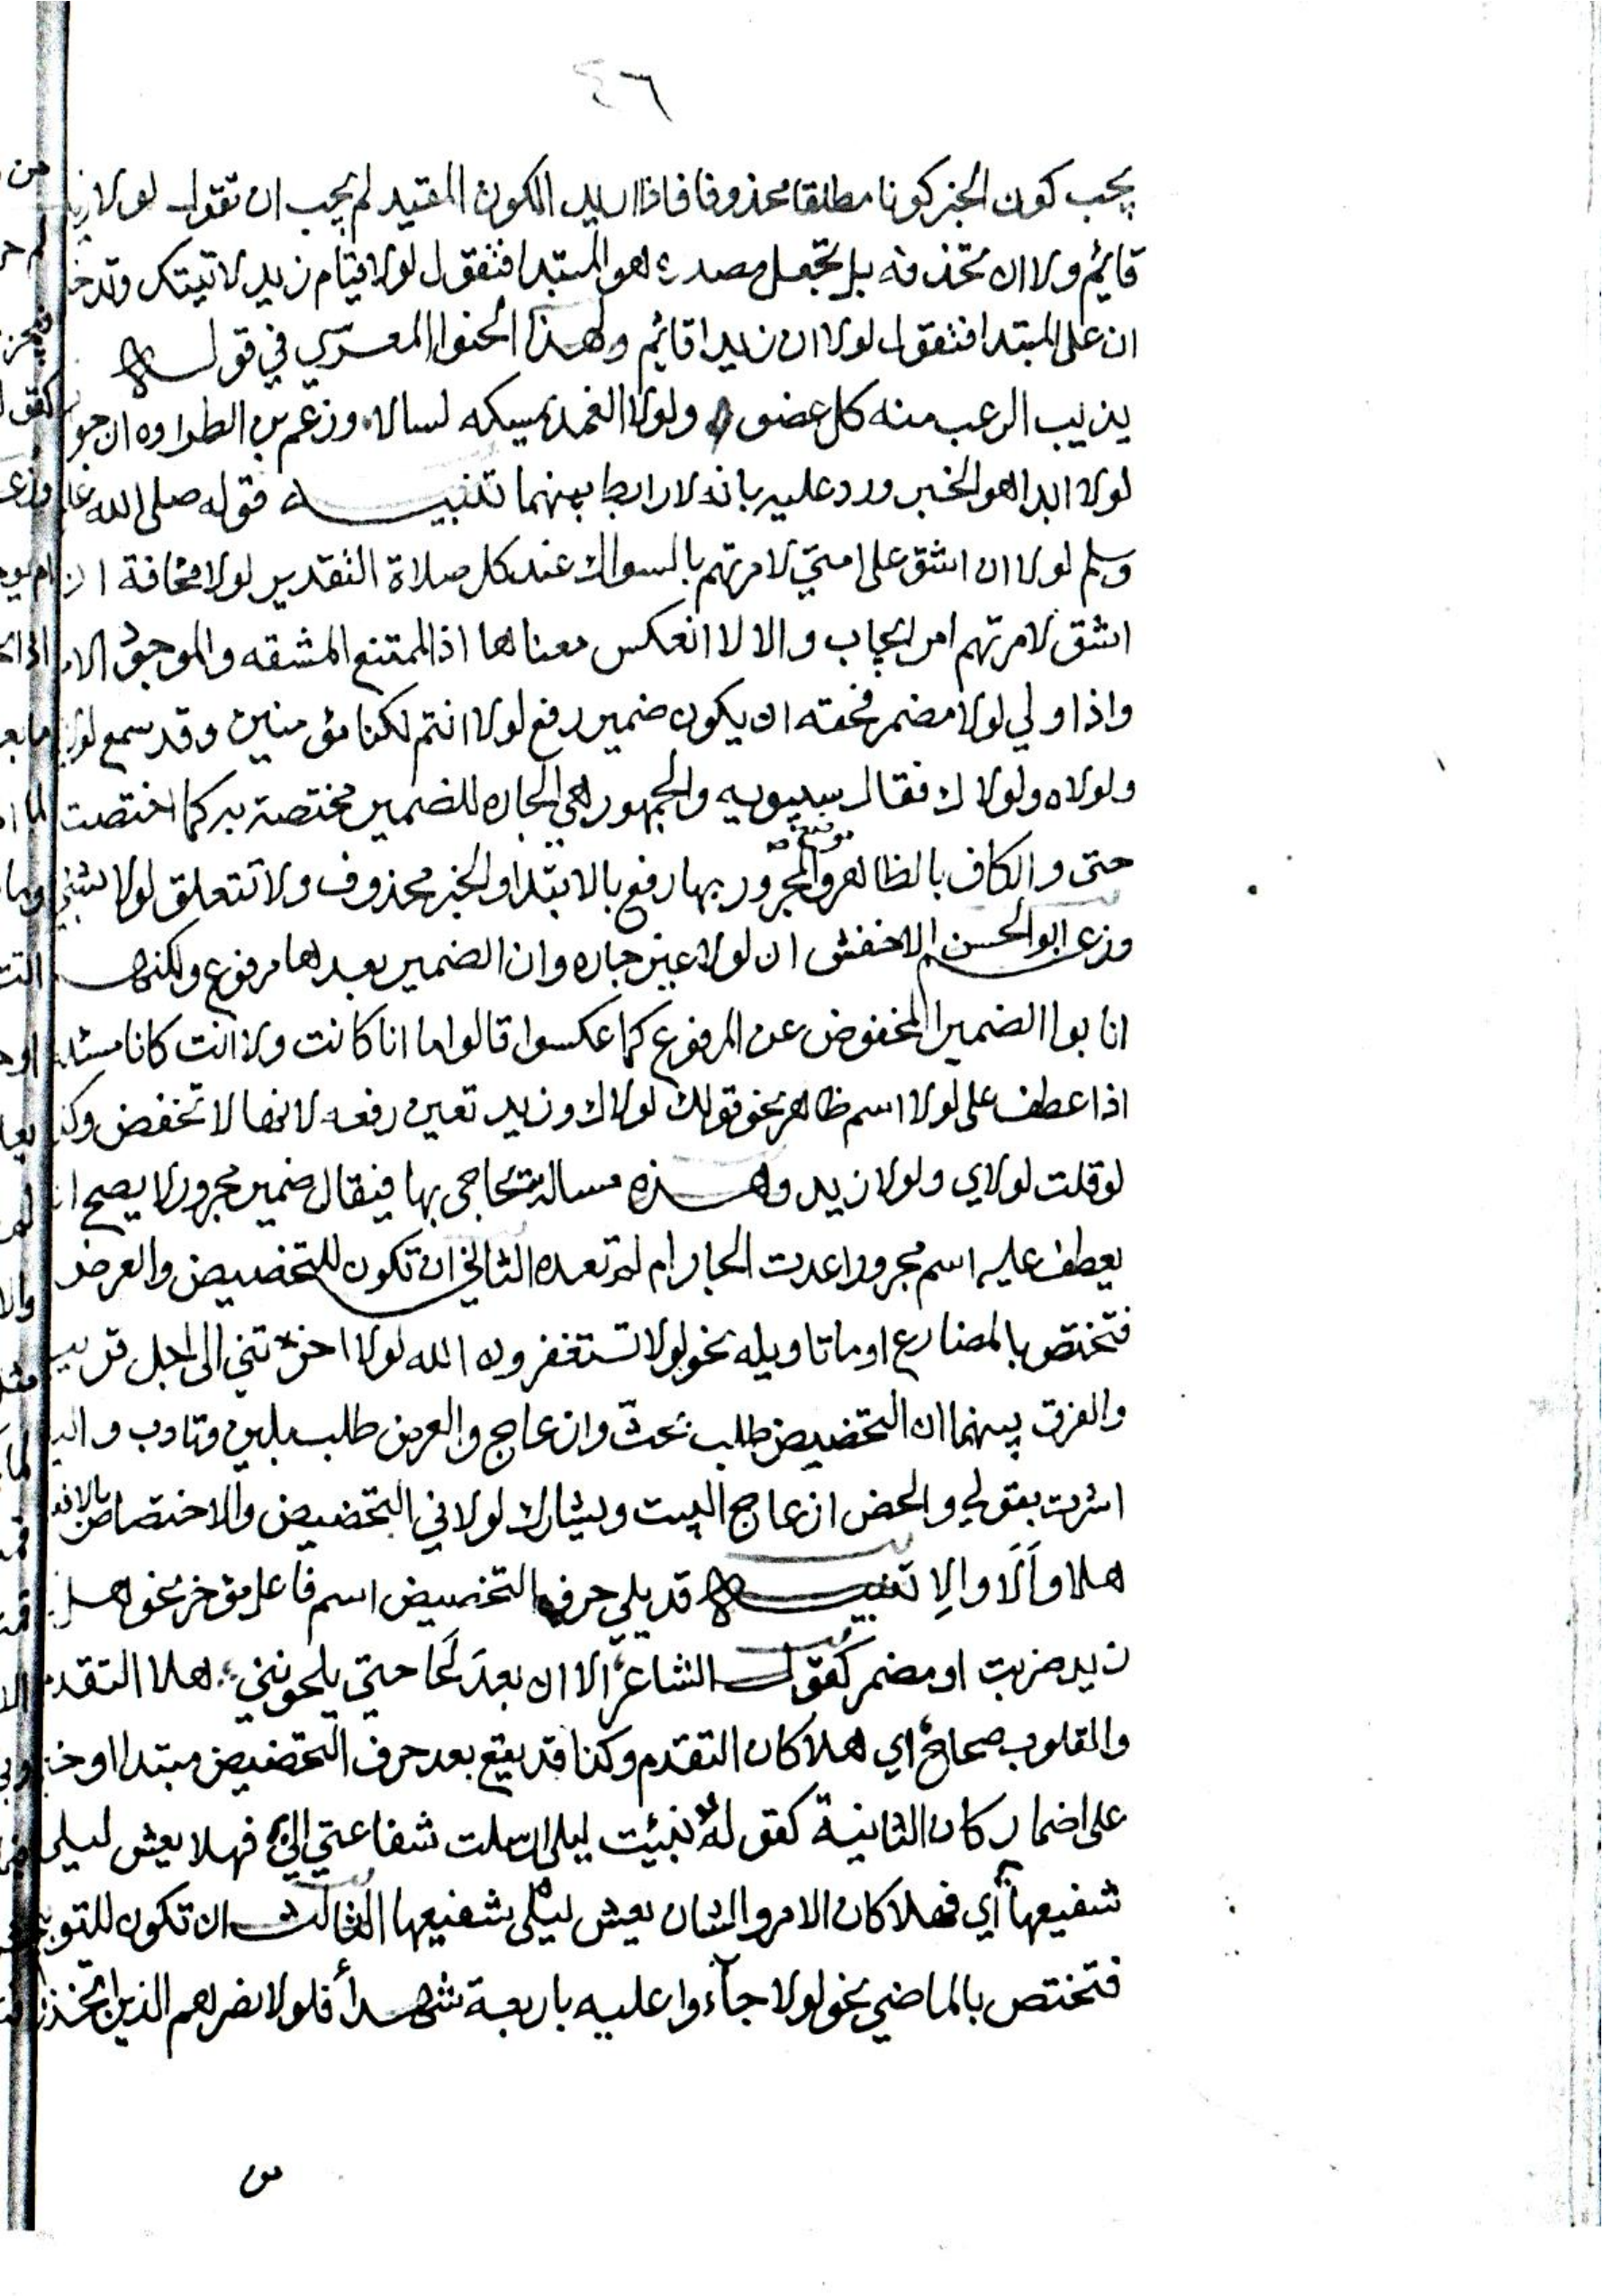 ٤٦
يجب كون الخبر كونا مطلقا محذوفا فاذا اريد الكون المقيد لم يجب ان تقول لولا زيد
قايم ولا ان تحذفه بل تجعل مصدره هو المبتدا فتقول لولا قيام زيد لاتيتك وتدخل
ان على المبتدا فتقول لولا ان زيدا قايم ولهذا لحنوا المعري في قوله
يذيب الرعب منه كل عضو ولولا الغمد يمسكه لسالا، وزعم بن الطراوه ان جواب
لولا ابدا هو الخبر ورد عليه بانه لا رابط بينهما تنبيه قوله صلى الله عليه
وسلم لولا ان اشق على امتي لامرتهم بالسواك عند كل صلاة التقدير لولا مخافة ان
اشق لامرتهم امر ايجاب والا لا انعكس معناها اذ الممتنع المشقه والموجود الامر
واذا ولي لولا مضمر فحقه ان يكون ضمير رفع لولا انتم لكنا مؤمنين وقد سمع لولاي
ولولاه ولولاك فقال سيبويه والجمهور هي الجاره للضمير مختصة به كما اختصت
حتى والكاف بالظاهر والمجرور بها
موضع
رفع بالابتدا والخبر محذوف ولا تتعلق لولا بشئ
وزعم ابو الحسن الاخفش ان لولا غير جاره وان الضمير بعدها مرفوع ولكنهم
انابوا الضمير المخفوض عن المرفوع كما عكسوا قالوا ما انا كانت ولا انت كانا مسئله
اذا عطف على لولا اسم ظاهر نحو قولك لولاك وزيد تعين رفعه لانها لا تخفض وكذا
لو قلت لولاي ولولا زيد وهذه مسالة يتحاجى بها فيقال ضمير مجرور لا يصح ان
يعطف عليه اسم مجرور اعدت الجار ام لم تعده الثاني ان تكون للتحضيض والعرض
فتختص بالمضارع او ما تاويله نحو لولا تستغفرون الله لولا اخرتني الى اجل قريب
والفرق بينهما ان التحضيض طلب بحث وازعاج والعرض طلب بلين وتادب واليه
اشرت بقولي والحض ازعاج البيت ويشارك لولا في التحضيض والاختصاص بالافعال
هلا وأَلَا والا تنبيه قد يلي حرف التحضيض اسم فاعل مؤخر نحو هلا
زيد ضربت او مضمر كقول الشاعر الا ان بعد لَحَا حتي يلحونني هلا التقدم
والقلوب صحاح اي هلا كان التقدم وكذا قد يقع بعد حرف التحضيض مبتدا او خبر
على اضمار كان الثانية كقوله نبئت ليلى ارسلت شفاعتي الي فهلا بعيش ليلى
شفيعها اي فهلا كان الامر والشان بعيش ليلى شفيعها الثالث ان تكون للتوبيخ
فتختص بالماضي نحو لولا جاءوا عليه باربعة شهدا فلولا نصرهم الذين اتخذوا
س